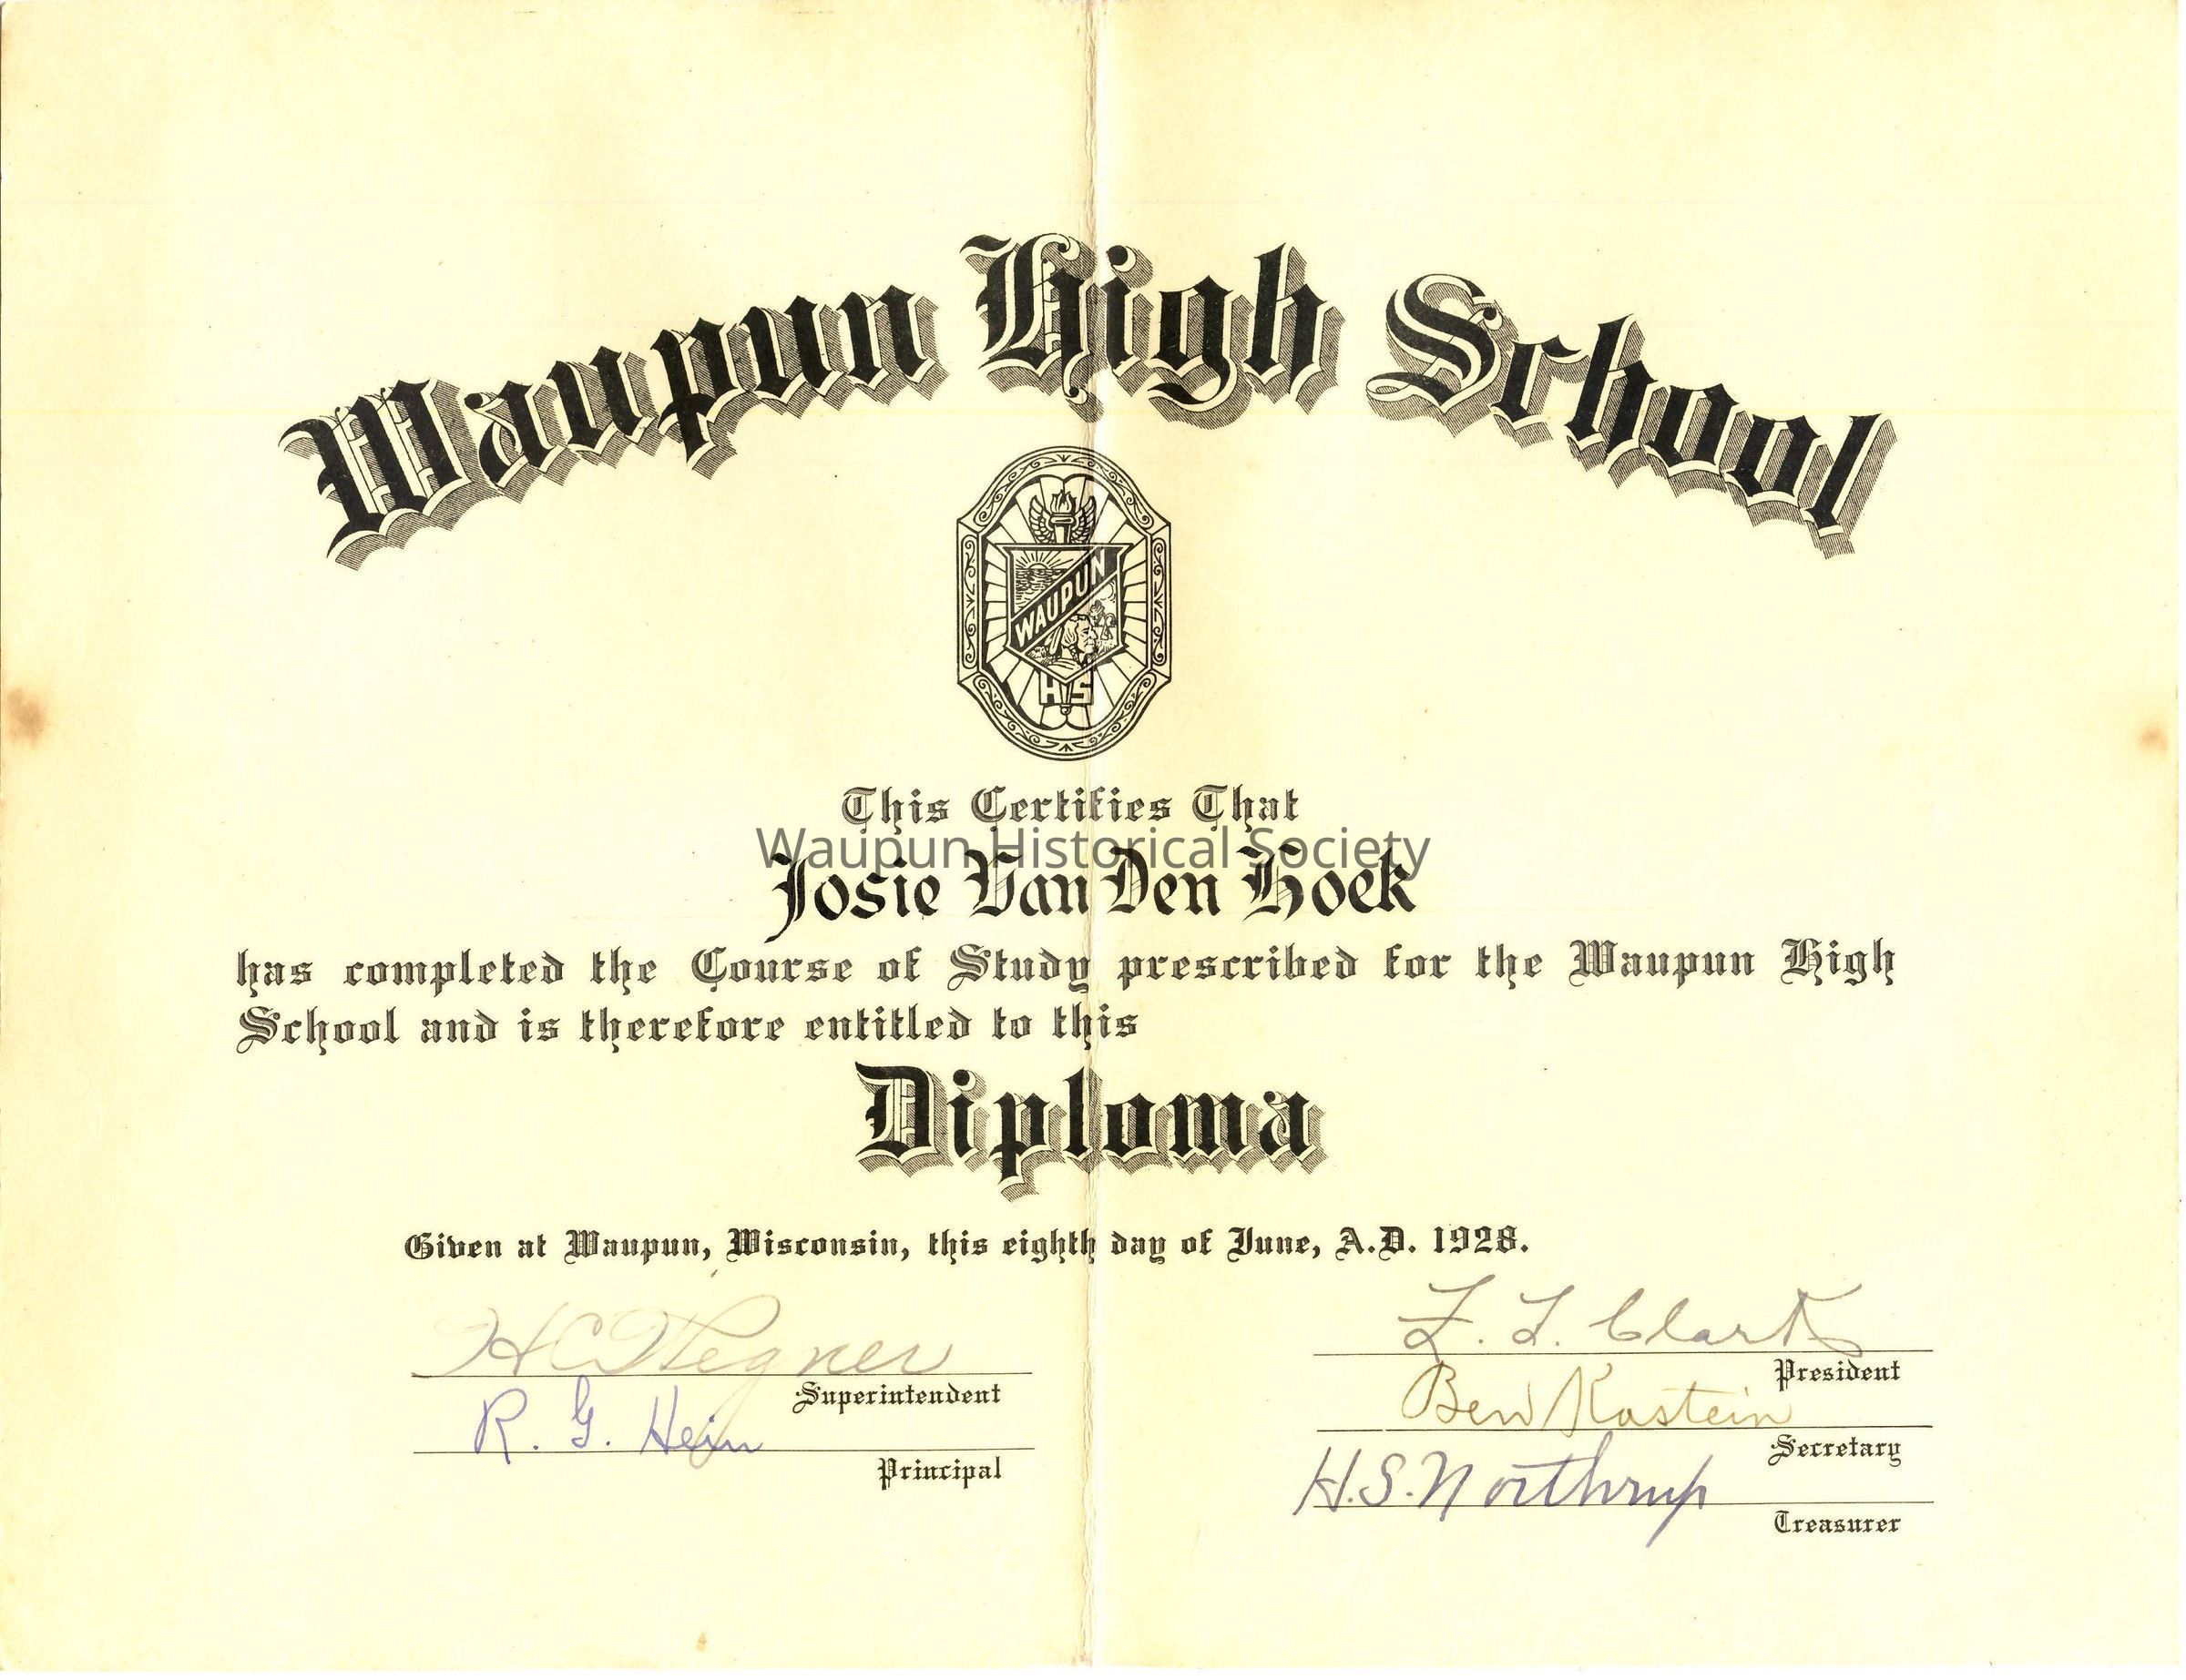 Waupun High School
WAUPUN
HS
This Certifies That
Waupun Historical Society
Josie Van Den Hoek
has completed the Course of Study prescribed for the Waupun High
School and is therefore entitled to this
Diploma
Given at Waupun, Wisconsin, this eighth day of June, A.D. 1928.
H C Wegner
Superintendent
R. G. Hein
Principal
F. L. Clark
President
Ben Kastein
Secretary
H.S. Northrup
Treasurer